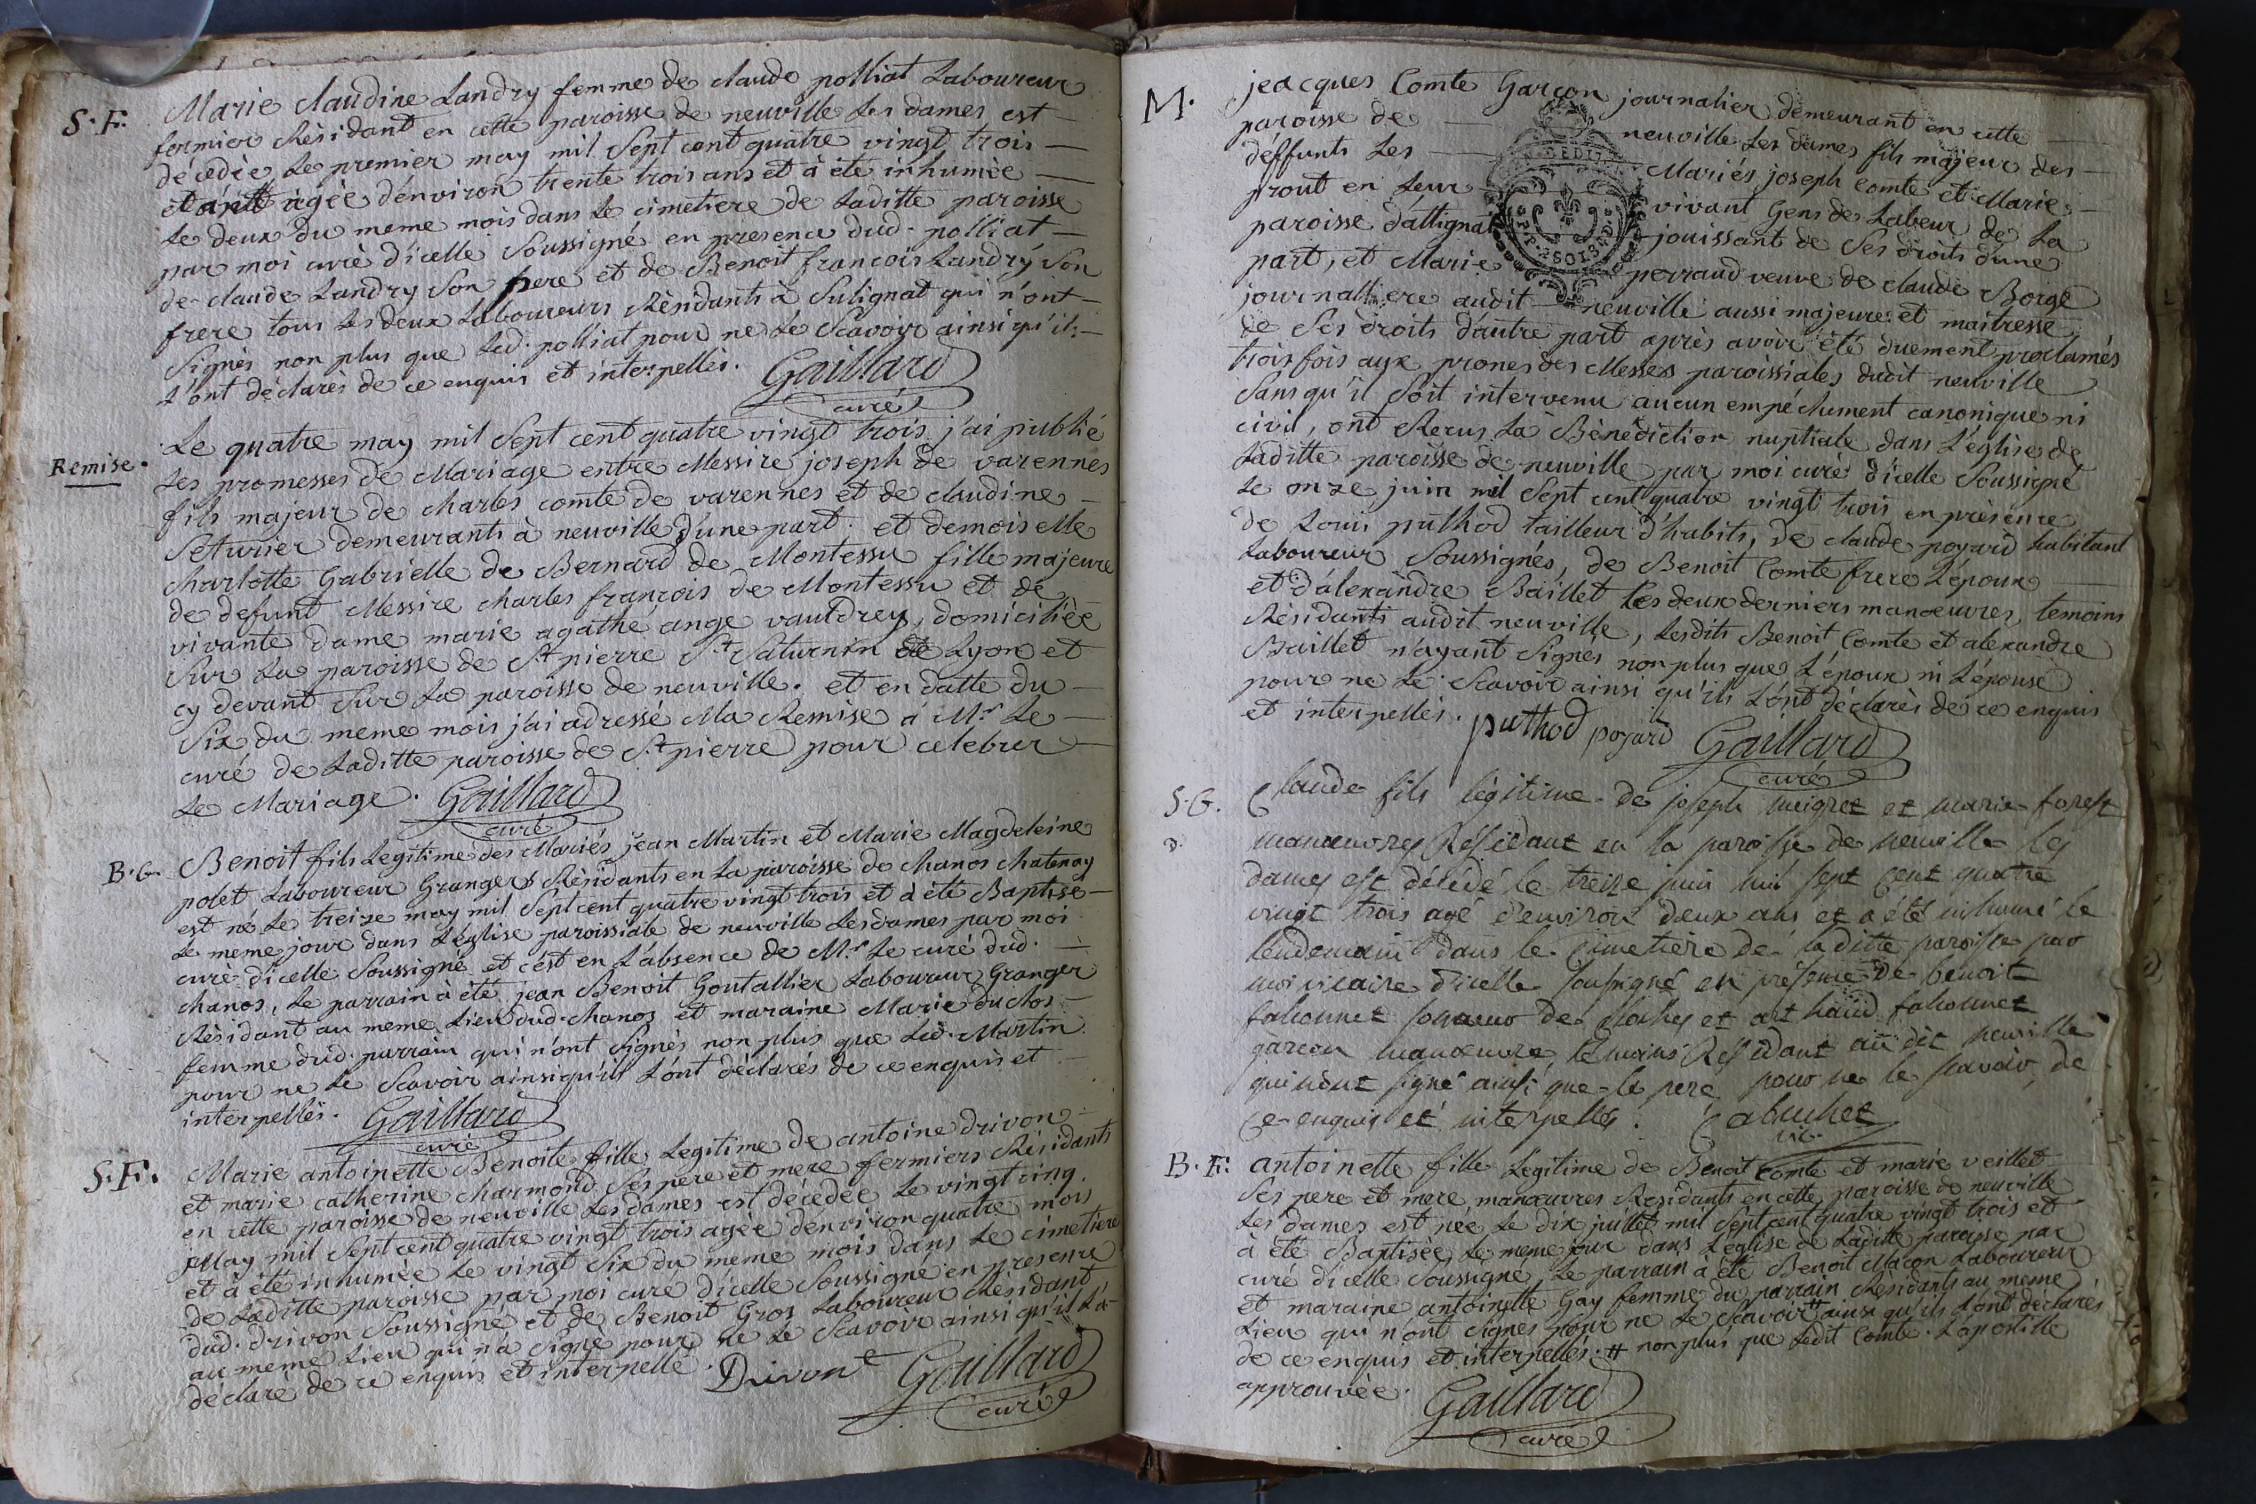 S. F. Marie claudine Landry femme de claude polliat Laboureur
fermier Résidant en cette paroisse de neuville Les dames est
décedée Le premier may mil Sept cent quatre vingt trois
agée d'environ trente trois ans et à été inhumée
Le deux du meme mois dans Le cimetiere de Laditte paroisse
par moi curé d'icelle Soussigné en presence dud. polliat
de claude Landry Son pere et de Benoit françois Landry Son
frere tous Les deux Laboureurs Résidants à Sulignat qui n'ont
Signés non plus que Led. polliat pour ne Le Scavoir ainsi qu'ils
L'ont déclarés de ce enquis et interpellés. Gaillard
curé
Remise. Le quatre may mil Sept cent quatre vingt trois j'ai publié
Les promesses de Mariage entre Messire joseph de varennes
fils majeur de charles comte de varennes et de claudine
Seturier demeurants à neuville d'une part. et demoiselle
charlotte Gabrielle de Bernard de Montessu fille majeure
de defunt Messire charles françois de Montessu et de
vivante dame marie agathe ange vaudrey, domiciliée
Sur La paroisse de St pierre St Saturnin de Lyon et
cy devant Sur La paroisse de neuville. et en datte du
Six du meme mois j'ai adressé Ma Remise à Mr Le
curé de Laditte paroisse de St pierre pour celebrer
Le Mariage. Gaillard
curé
B. G. Benoit fils Legitime des Mariés jean Martin et Marie Magdeleine
polet Laboureur Grangers Résidants en La paroisse de chanos chatenay
est né Le treize may mil Sept cent quatre vingt trois et à été Baptisé
Le meme jour dans L'église paroissiale de neuville Les dames par moi
curé d'icelle Soussigné et c'est en L'absence de Mr Le curé dud.
chanos, Le parrain à été jean Benoit Goutallier Laboureur Granger
Résidant au meme Lieu dud. chanos et maraine Marie duclos
femme dud. parrain qui n'ont Signés non plus que Led. Martin
pour ne Le Scavoir ainsi qu'ils L'ont déclarés de ce enquis et
interpellés. Gaillard
curé
S. F. Marie antoinette Benoite fille Légitime de antoine drivon
et marie catherine charmond Ses pere et mere fermiers Résidants
en cette paroisse de neuville Les dames est décedée Le vingt cinq
May mil Sept cent quatre vingt trois agée d'environ quatre mois
et à été inhumée Le vingt Six du meme mois dans Le cimetiere
de Laditte paroisse par moi curé d'icelle Soussigné en presence
dud. drivon Soussigné et de Benoit Gros Laboureur Résidant
au meme Lieu qui n'a Signé pour ne Le Scavoir ainsi qu'il L'a
déclaré de ce enquis et interpellé. Drivon Gaillard
curé
M. jeacques Comte Garçon journalier demeurant en cette
paroisse de neuville Les dames fils majeur des
déffunts Les Mariés joseph Comte et Marie
prout en Leur vivant Gens de Labeur de La
paroisse d'attignat jouissant de Ses droits d'une
part, et Marie perraud veuve de claude Borge
journalliere audit neuville aussi majeure et maitresse
de Ses droits d'autre part après avoir été duement proclamés
trois fois aux prones des Messes paroissiales dudit neuville
Sans qu'il Soit intervenu aucun empéchement canonique ni
civil, ont Recus La Bénédiction nuptiale dans L'église de
Laditte paroisse de neuville par moi curé d'icelle Soussigné
Le onze juin mil Sept cent quatre vingt trois en présence
de Louis puthod tailleur d'habits, de claude poyard habitant
Laboureur Soussignés, de Benoit Comte frere L'époux
et d'alexandre Baillet Les deux derniers manœuvres, temoins
Résidants audit neuville, Lesdits Benoit Comte et alexandre
Baillet n'ayant Signés non plus que L'époux ni L'épouse
pour ne Le Scavoir ainsi qu'ils L'ont déclarés de ce enquis
et interpellés. puthod poyard Gaillard
curé
S. G. Claude fils légitime de joseph meigret et marie forest
manœuvres Résidant en la paroisse de neuville les
dames est décédé le treize juin mil sept cent quatre
vingt trois agé d'environ deux ans et a été inhumé le
lendemain dans le cimetière de laditte paroisse par
moi vicaire d'icelle soussigné en présence de benoit
falconnet sonneur de cloches et falconnet
garçon manœuvre témoins Résidant au dit neuville
qui n'ont signé ainsi que le pere pour ne le savoir, de
ce enquis et interpellés. Cabuchet
vic.
B. F. antoinette fille Légitime de Benoit Comte et marie veillet
Ses pere et mere manœuvres Residants en cette paroisse de neuville
Les dames est née Le dix juillet mil Sept cent quatre vingt trois et
à été Baptisée Le meme jour dans L'église de Laditte paroisse par
curé d'icelle Soussigné, Le parrain à été Benoit Macon Laboureur
et maraine antoinette Gay femme du parrain Résidants au meme
Lieu qui n'ont Signés pour ne Le Scavoir # ainsi qu'ils L'ont déclarés
de ce enquis et interpellés. # non plus que Ledit Comte. L'apostille
approuvée. Gaillard
curé